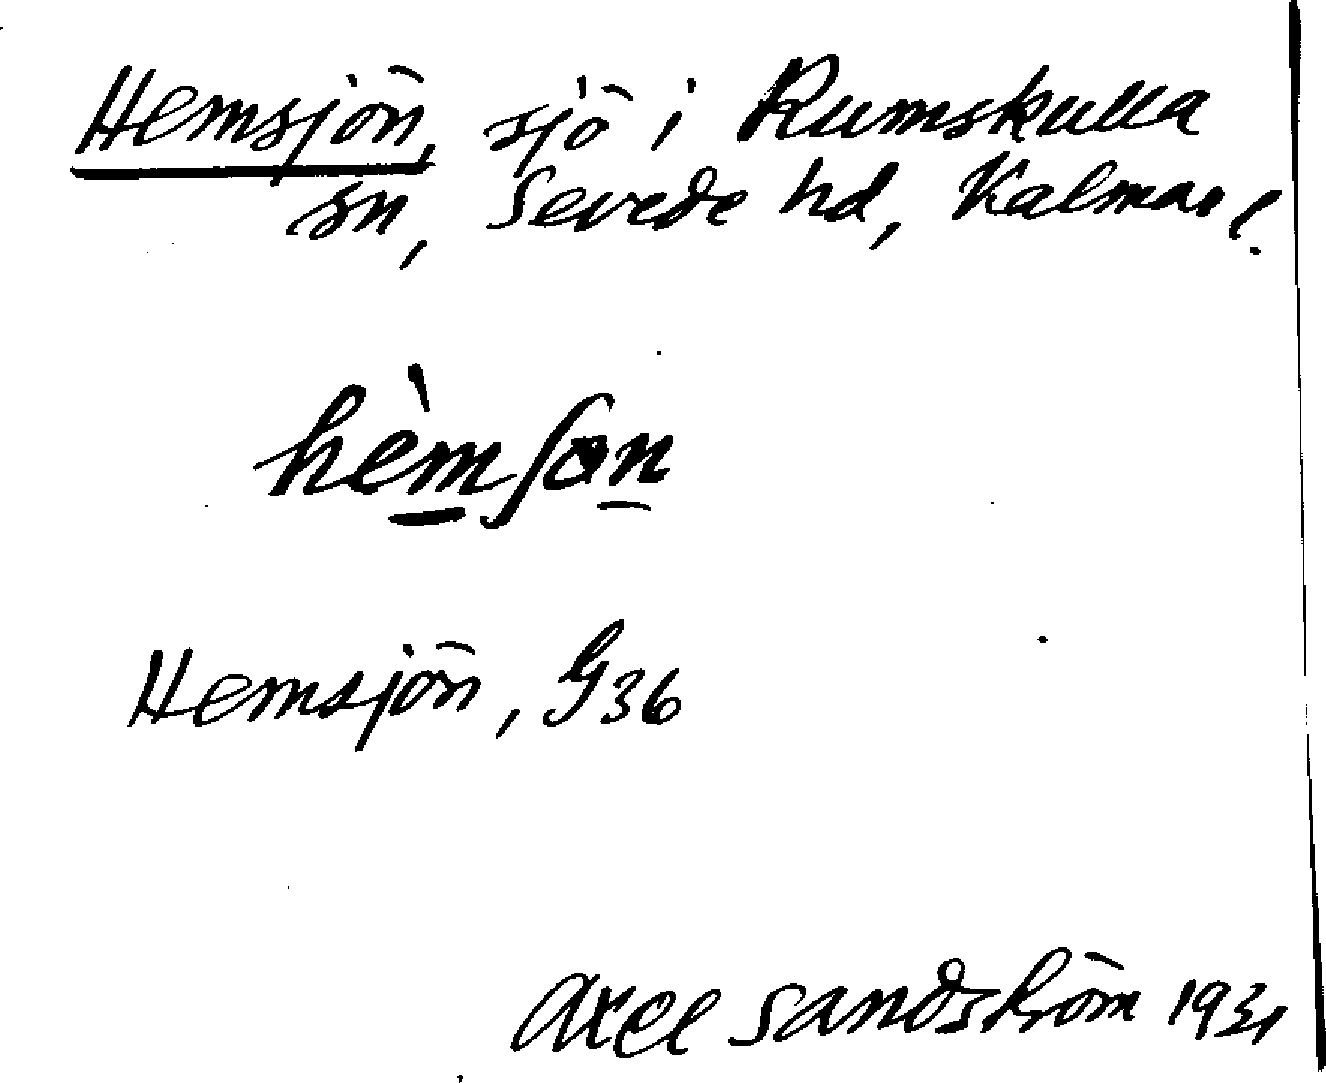 Hemsjön, sjö i Rumskulla
sn, Sevede hd, Kalmar l.
Hemsjön, G36
Axel Sandström 1931